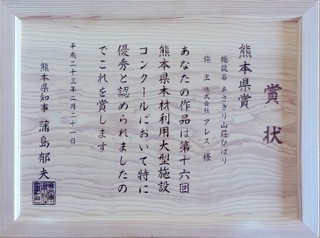 賞状
熊本県賞
施設名 あさぎり山荘ひばり
施主 株式会社 アレス 様
あなたの作品は第十六回
熊本県木材利用大型施設
コンクールにおいて特に
優秀と認められましたの
でこれを賞します
平成二十三年二月二十一日
熊本県知事 蒲島郁夫